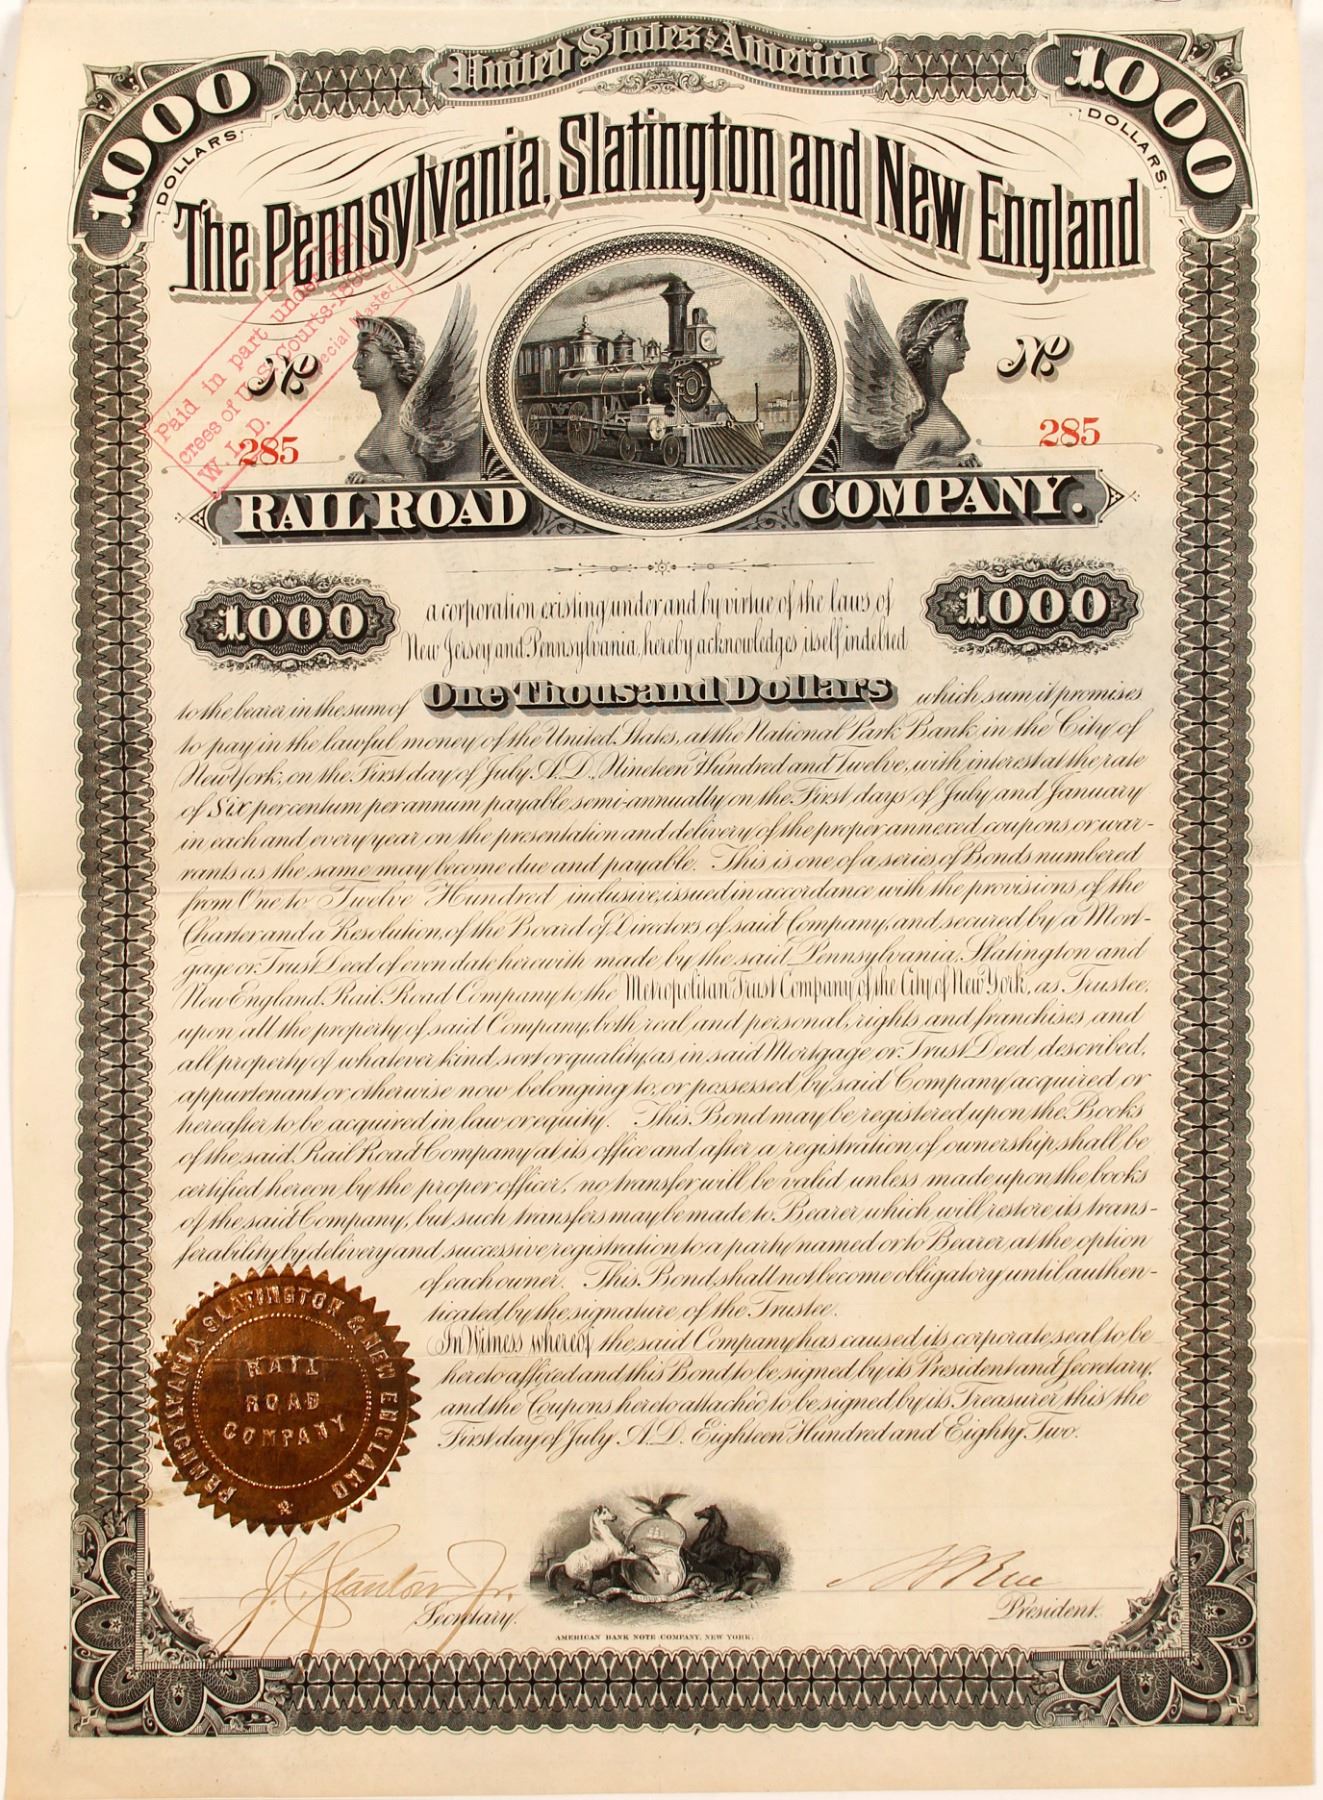 United States of America
1000 DOLLARS.
1000 DOLLARS.
The Pennsylvania, Slatington and New England
Paid in part under de-
crees of U.S. Courts-
W. I. D. Special Master.
No 285
No 285
RAIL ROAD COMPANY.
1000
1000
a corporation existing under and by virtue of the laws of
New Jersey and Pennsylvania, hereby acknowledges itself indebted
to the bearer in the sum of One Thousand Dollars which sum it promises
to pay in the lawful money of the United States, at the National Park Bank, in the City of
New York, on the First day of July A.D. Nineteen Hundred and Twelve, with interest at the rate
of Six per centum per annum payable semi-annually on the First days of July and January
in each and every year on the presentation and delivery of the proper annexed coupons or war-
rants as the same may become due and payable. This is one of a series of Bonds numbered
from One to Twelve Hundred inclusive, issued in accordance with the provisions of the
Charter and a Resolution of the Board of Directors of said Company, and secured by a Mort-
gage or Trust Deed of even date herewith made by the said Pennsylvania, Slatington and
New England Rail Road Company to the Metropolitan Trust Company of the City of New York, as Trustee,
upon all the property of said Company, both real and personal, rights and franchises, and
all property of whatever kind, sort or quality, as in said Mortgage or Trust Deed described,
appurtenant or otherwise now belonging to, or possessed by said Company acquired or
hereafter to be acquired in law or equity. This Bond may be registered upon the Books
of the said Rail Road Company at its office and after a registration of ownership, shall be
certified hereon by the proper officer, no transfer will be valid unless made upon the books
of the said Company, but such transfers may be made to Bearer which will restore its trans-
ferability by delivery and successive registration to a party named or to Bearer, at the option
of each owner. This Bond shall not become obligatory until authen-
ticated by the signature of the Trustee.
In Witness whereof the said Company has caused its corporate seal to be
hereto affixed and this Bond to be signed by its President and Secretary,
and the Coupons hereto attached to be signed by its Treasurer this the
First day of July A.D. Eighteen Hundred and Eighty Two.
PENNSYLVANIA SLATINGTON & NEW ENGLAND
RAIL
ROAD
COMPANY
J. C. Stanton Jr.
Secretary.
President.
AMERICAN BANK NOTE COMPANY, NEW YORK.